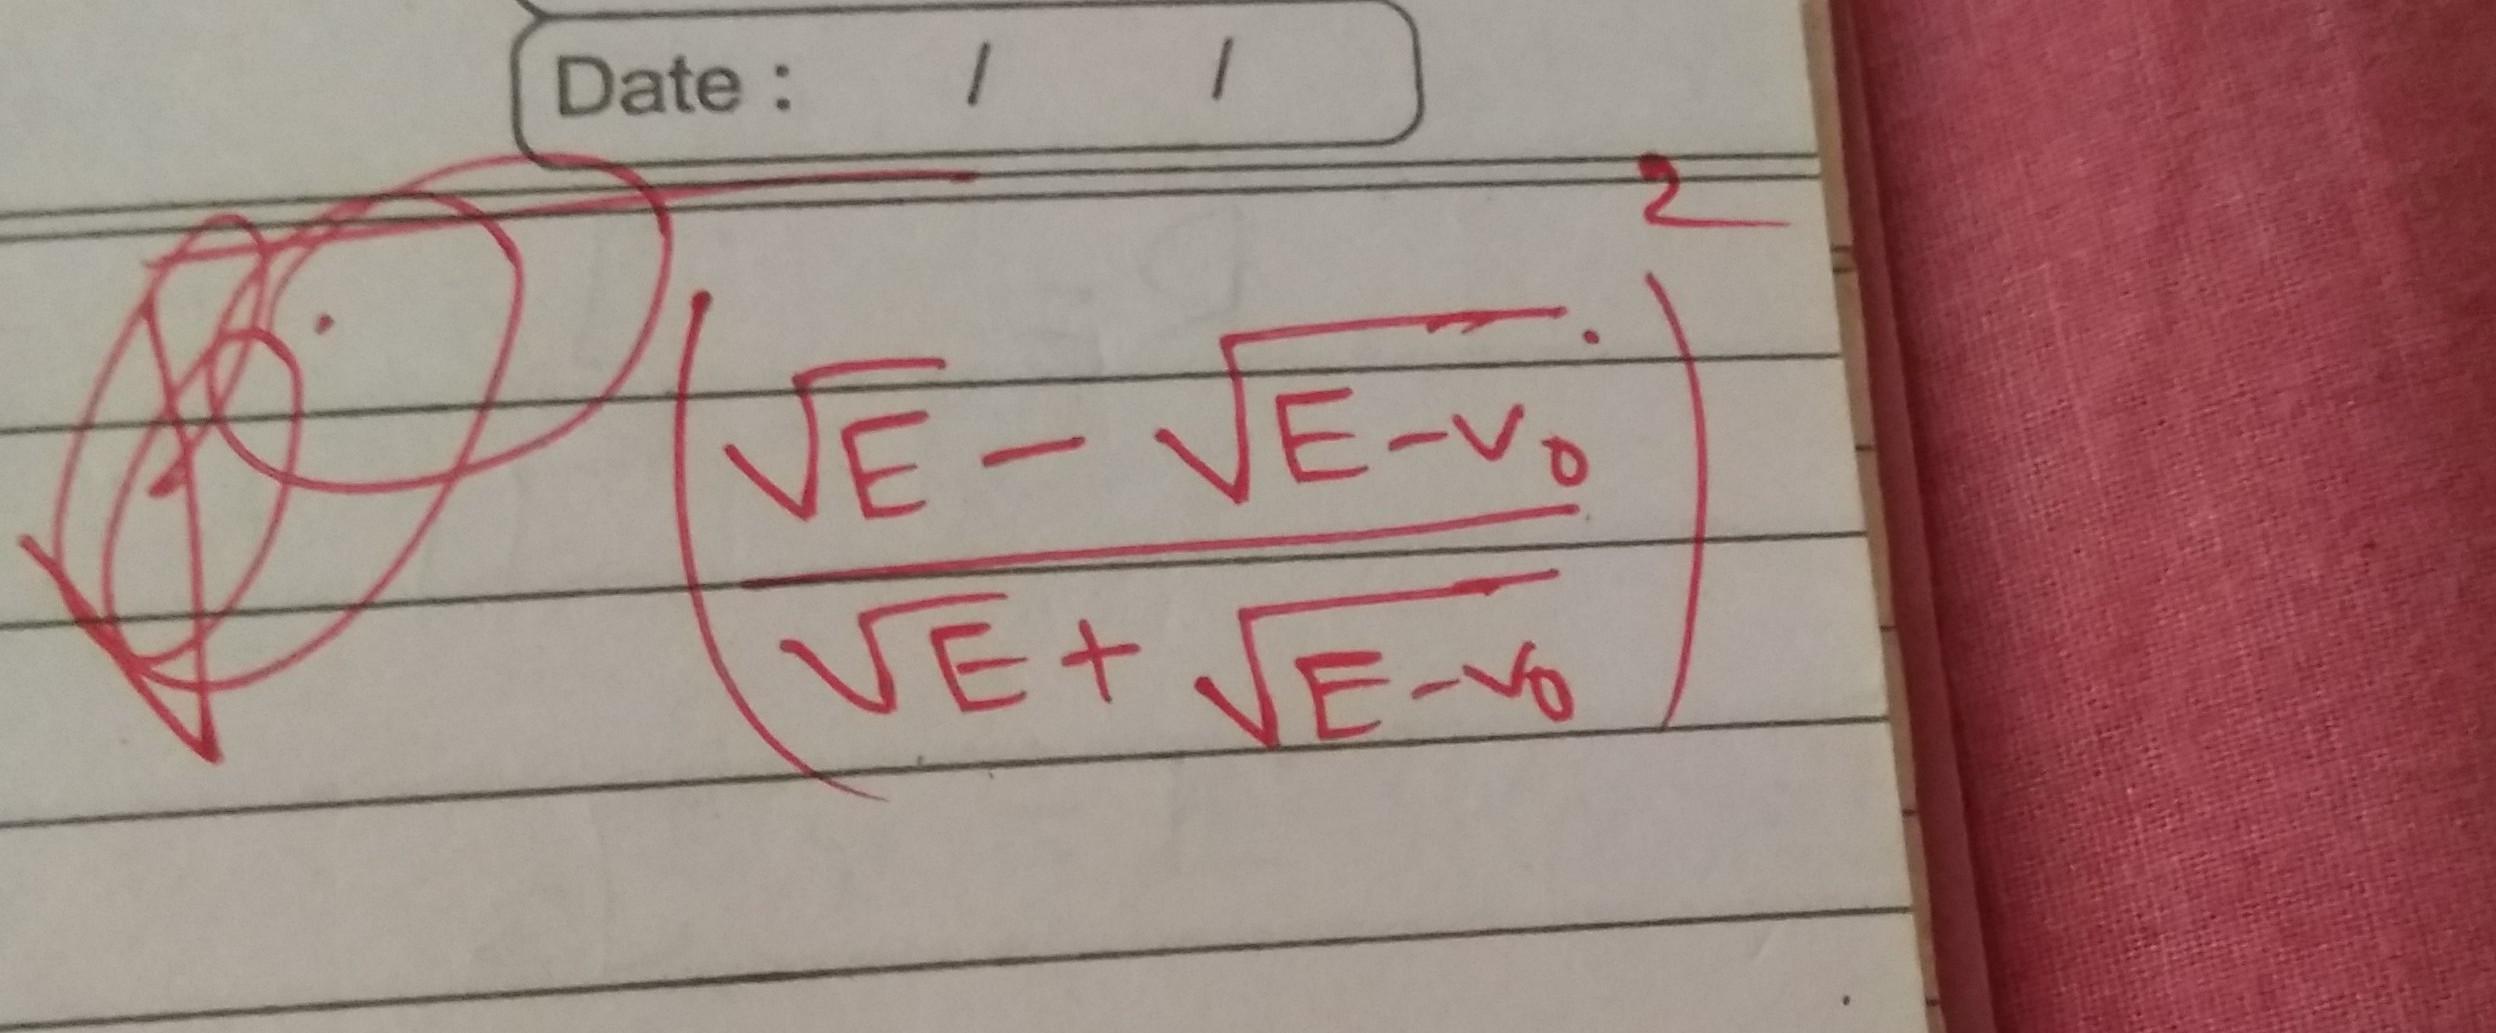 Date : / /
(√E - √(E-v₀) / √E + √(E-v₀))²